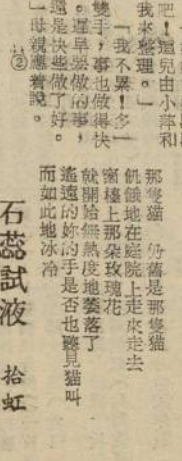 吧！這兒由小萍和
我來整理。」
「我不累！多一
雙手，事也做得快
。遲早要做的事，
還是快些做了好。
」母親應着說。
②
那隻貓 仍舊是那隻貓
飢餓地在庭院上走來走去
窗檯上那朵玫瑰花
就開始無熱度地萎落了
遙遠的妳的手是否也聽見貓叫
而如此地冰冷
石蕊試液 拾虹